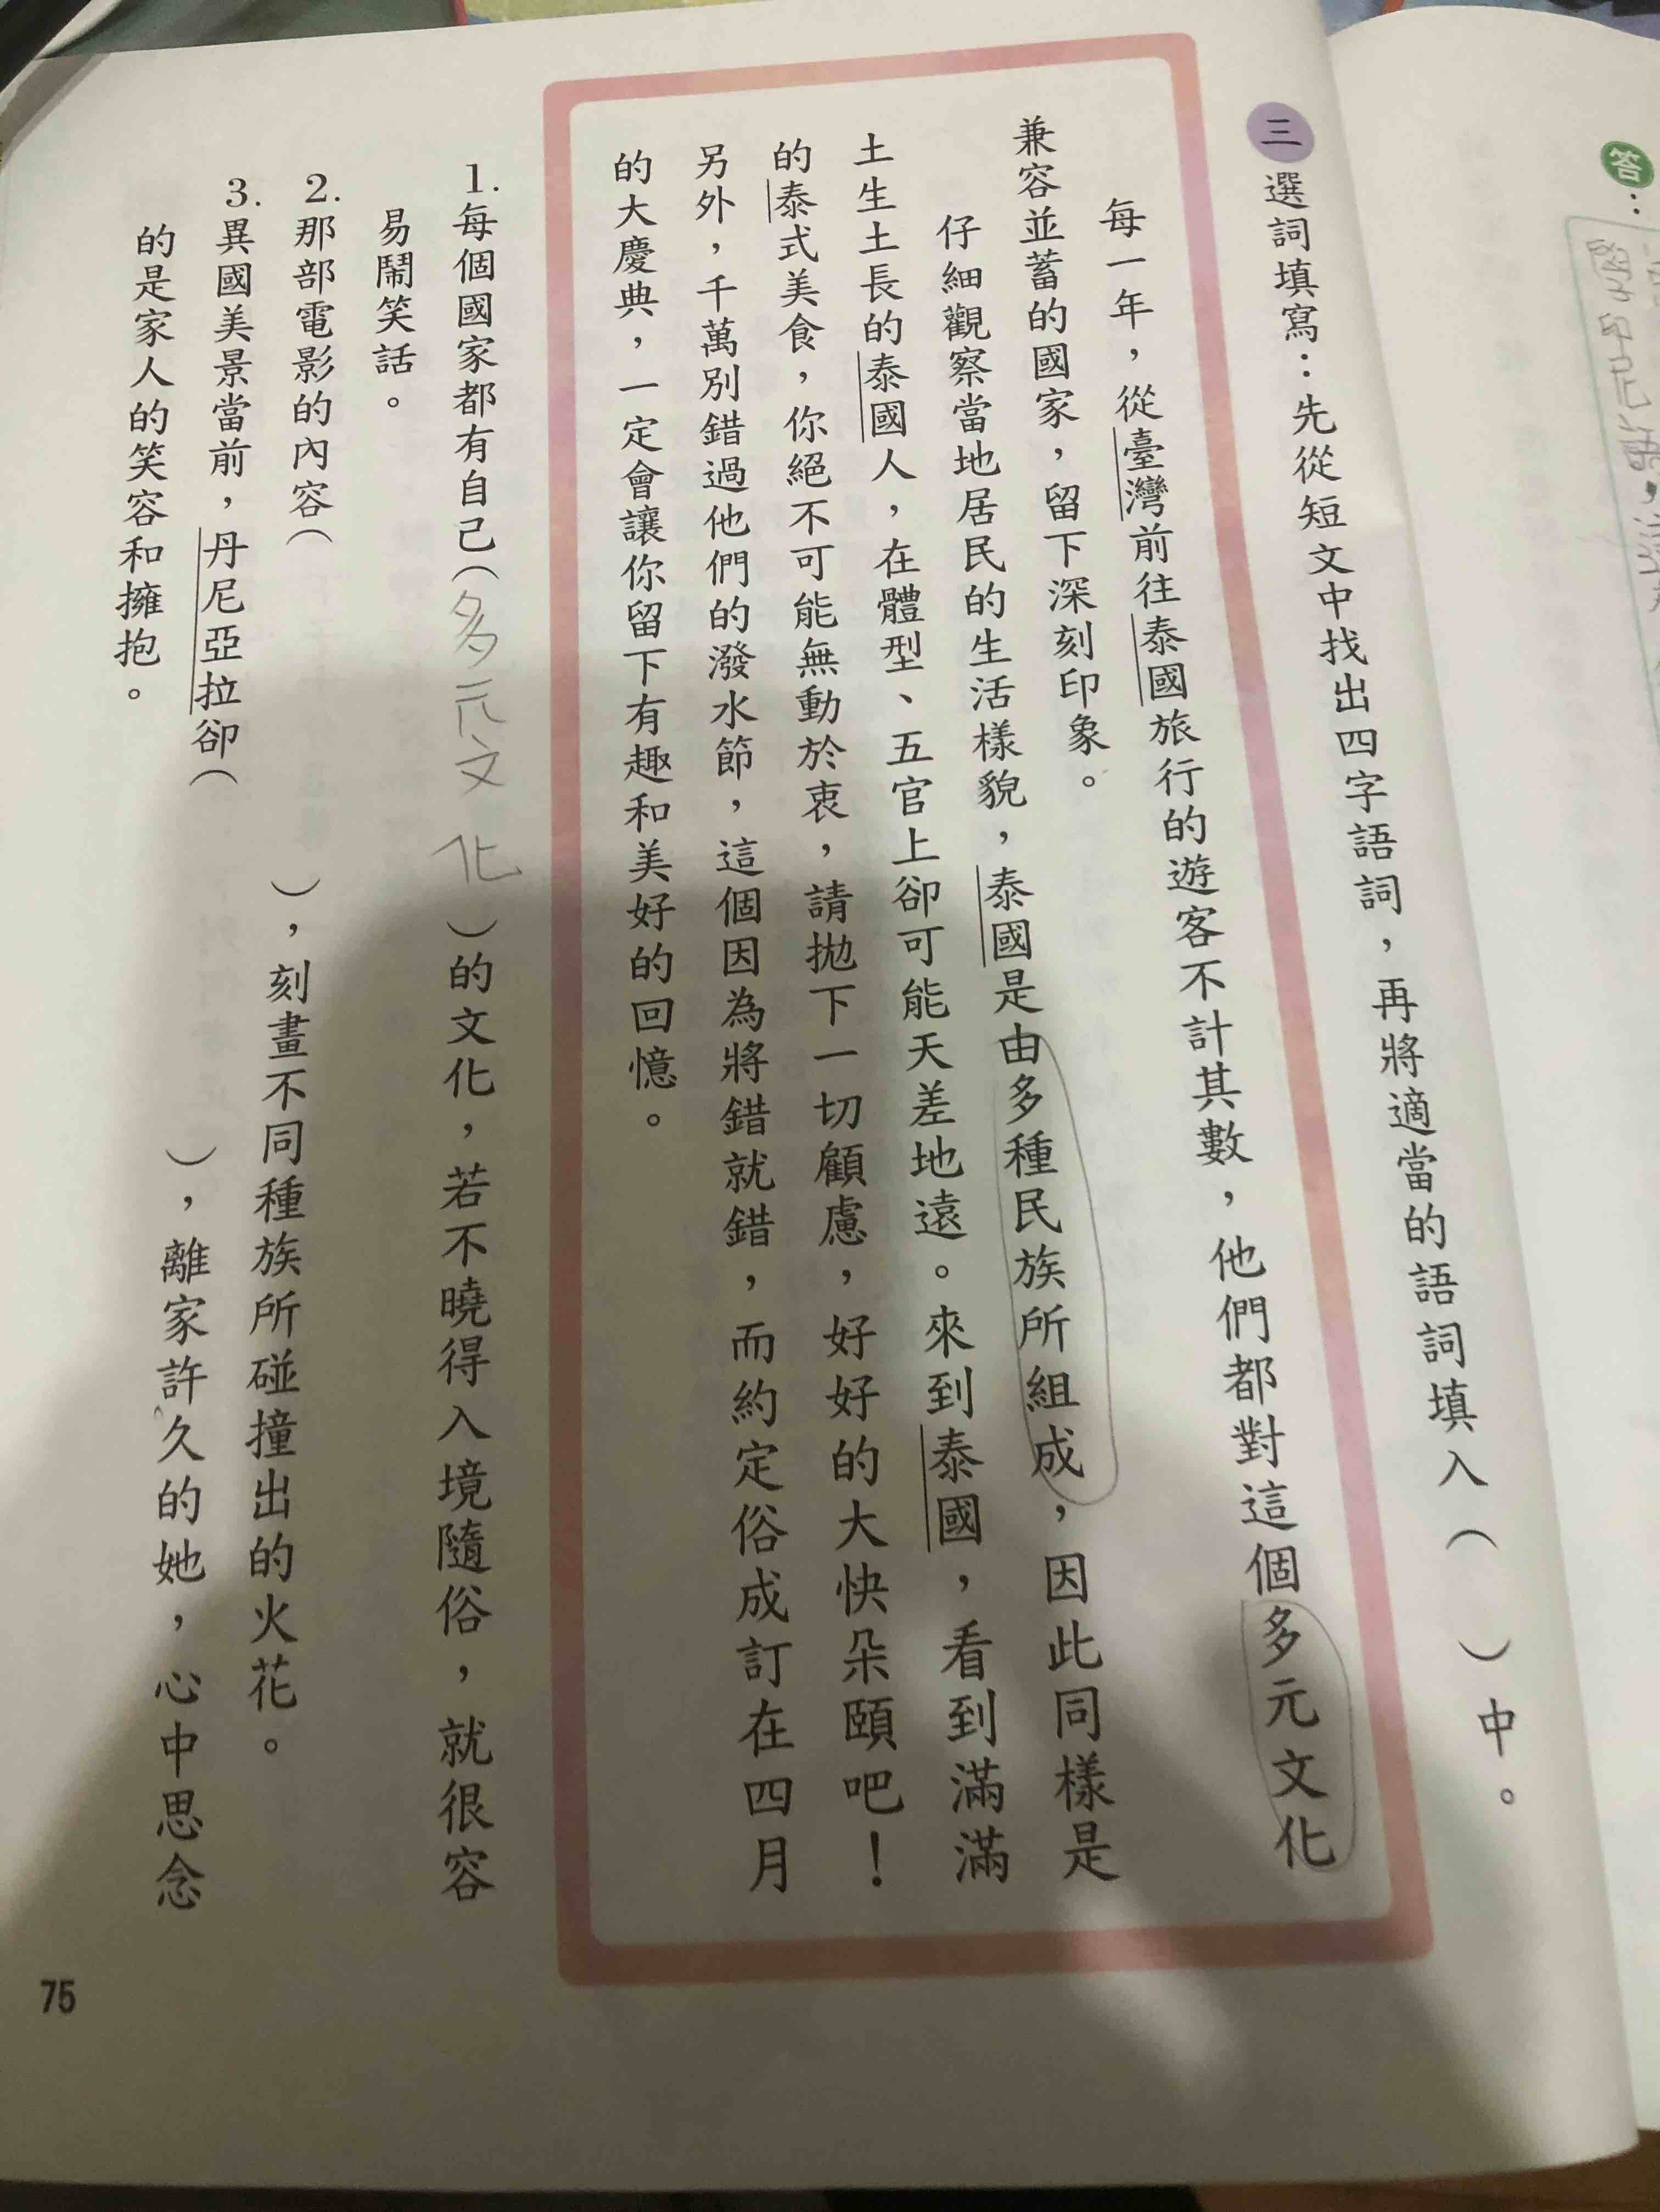 答：
學印尼語，
三 選詞填寫：先從短文中找出四字語詞，再將適當的語詞填入（　）中。
每一年，從臺灣前往泰國旅行的遊客不計其數，他們都對這個多元文化
兼容並蓄的國家，留下深刻印象。
仔細觀察當地居民的生活樣貌，泰國是由多種民族所組成，因此同樣是
土生土長的泰國人，在體型、五官上卻可能天差地遠。來到泰國，看到滿滿
的泰式美食，你絕不可能無動於衷，請拋下一切顧慮，好好的大快朵頤吧！
另外，千萬別錯過他們的潑水節，這個因為將錯就錯，而約定俗成訂在四月
的大慶典，一定會讓你留下有趣和美好的回憶。
1. 每個國家都有自己（多元文化）的文化，若不曉得入境隨俗，就很容
易鬧笑話。
2. 那部電影的內容（　），刻畫不同種族所碰撞出的火花。
3. 異國美景當前，丹尼亞拉卻（　），離家許久的她，心中思念
的是家人的笑容和擁抱。
75